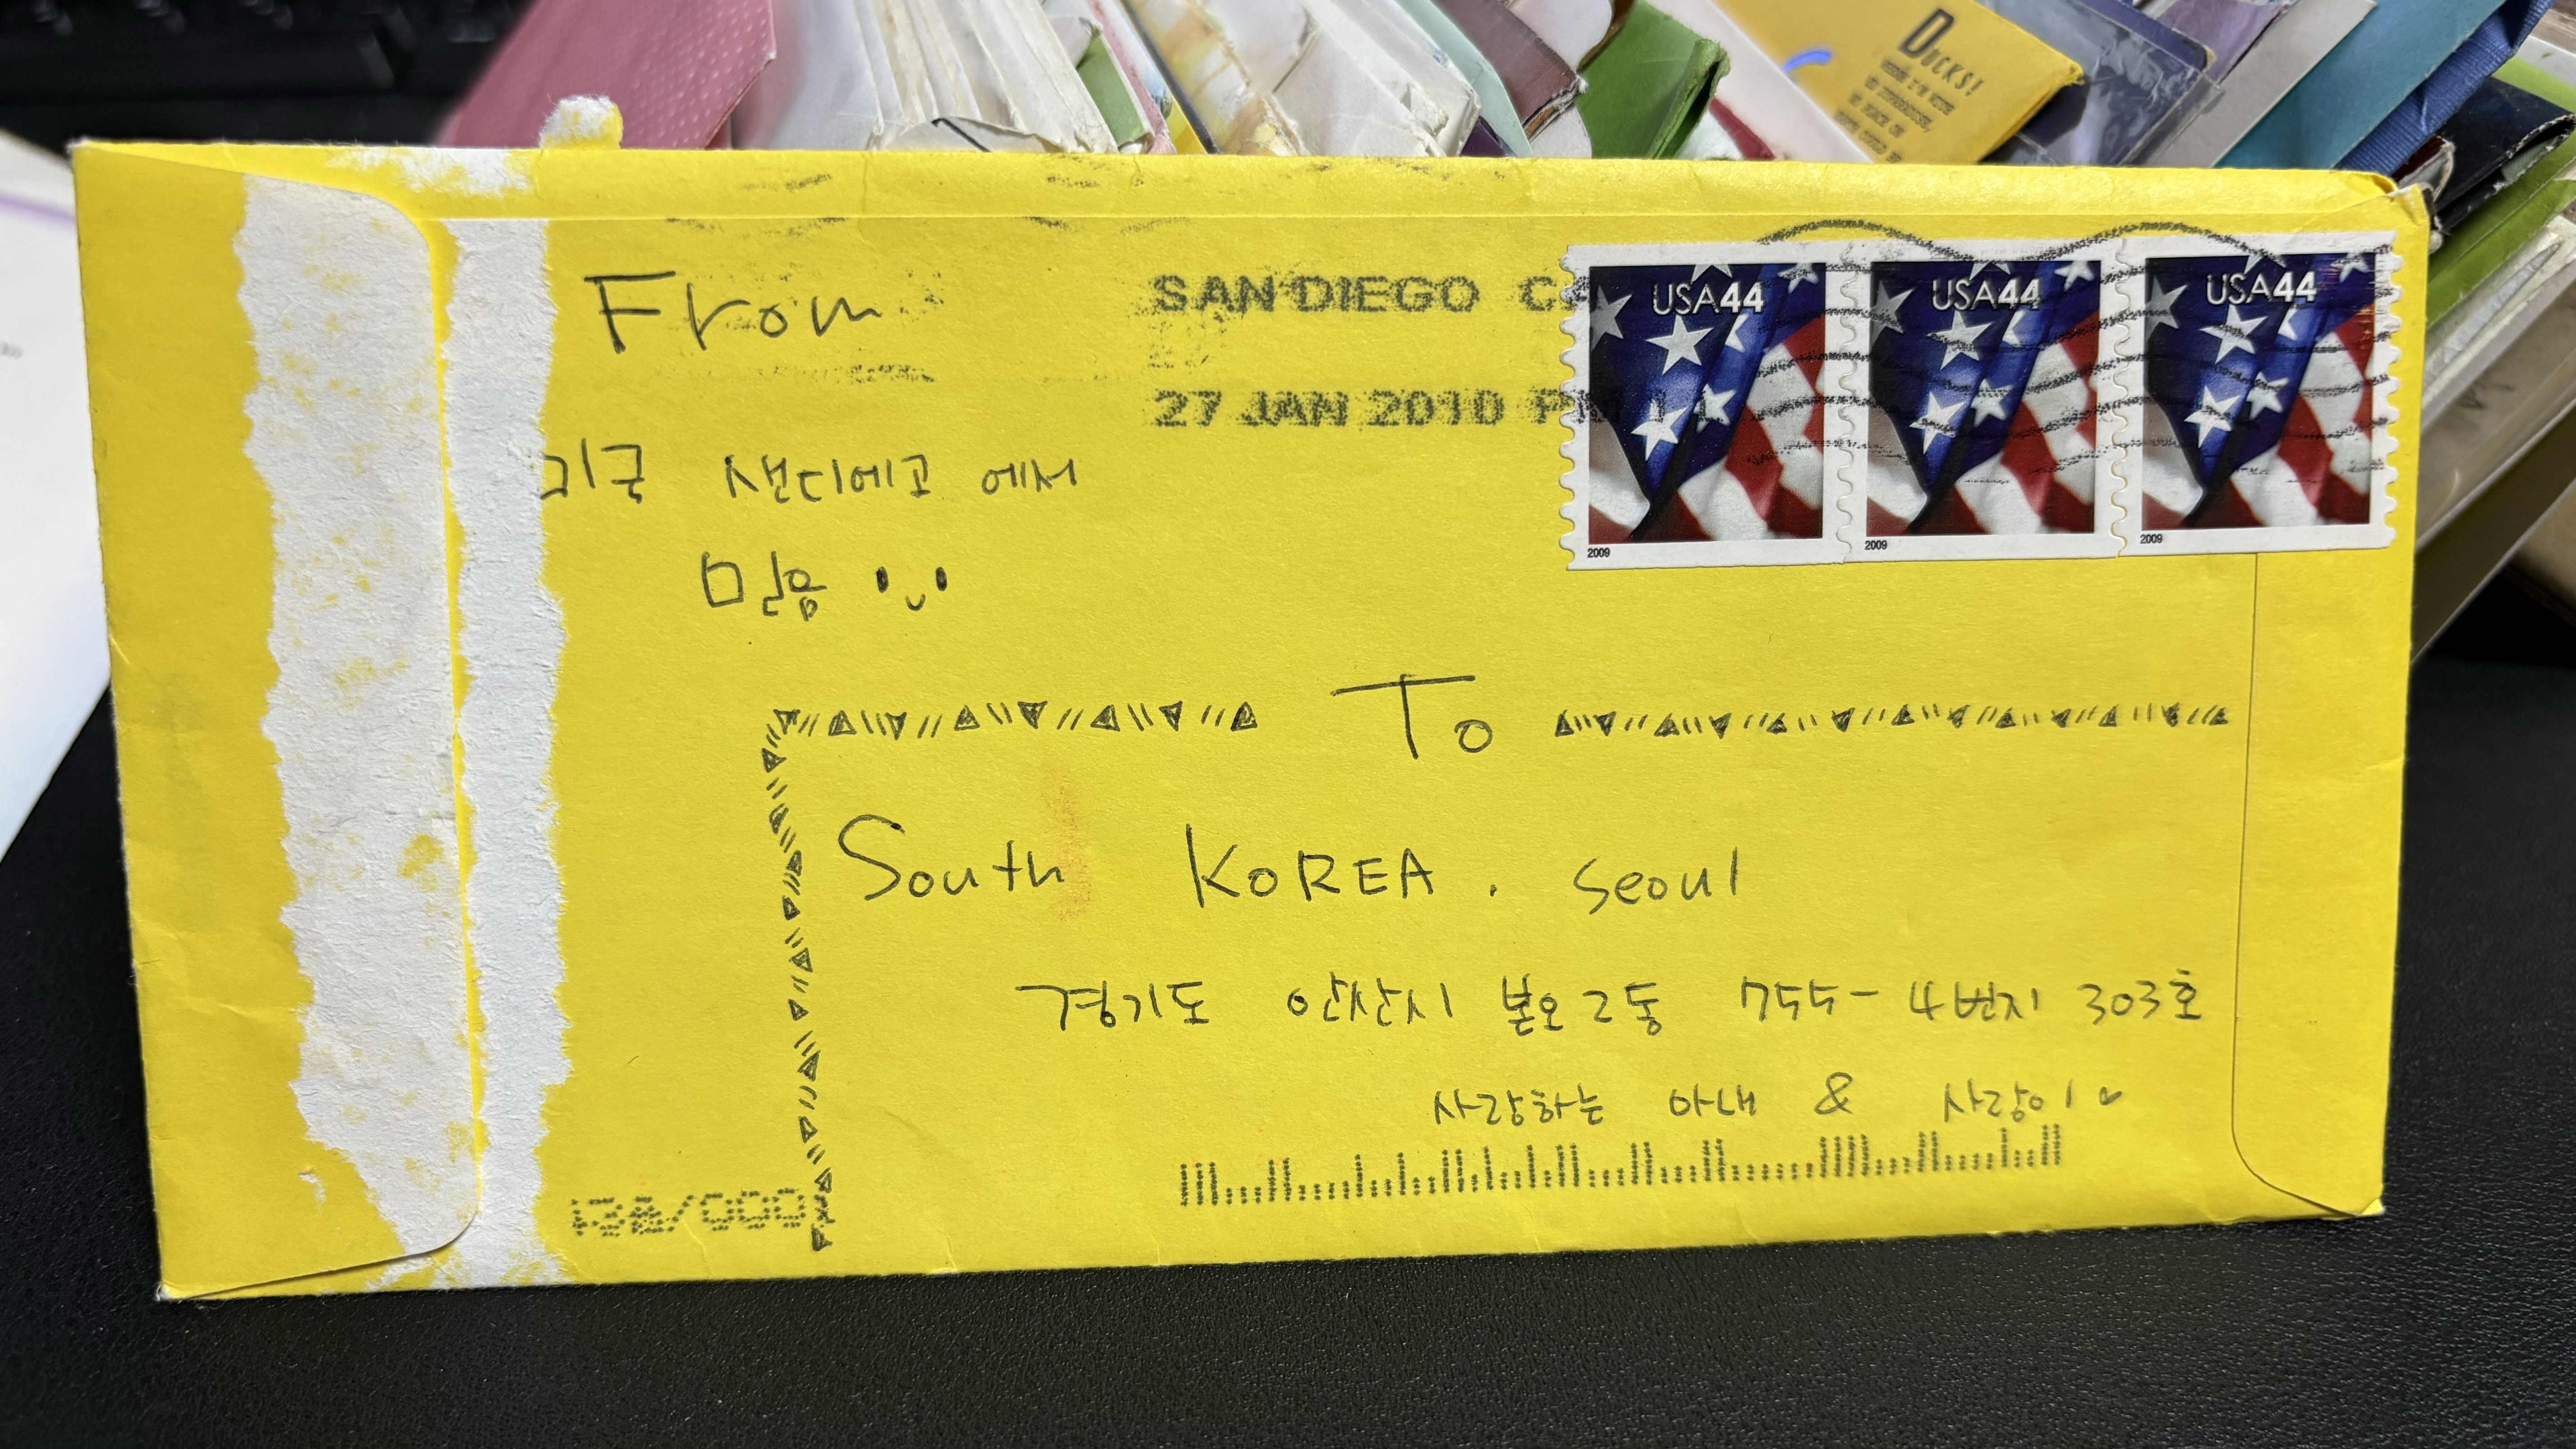 DUCKS!
From
SAN DIEGO CA
27 JAN 2010 PM
USA44 USA44 USA44
2009 2009 2009
미국 샌디에고 에서
민용
To
South KOREA. Seoul
경기도 안산시 본오2동 755-4번지 303호
사랑하는 아내 & 사랑이♡